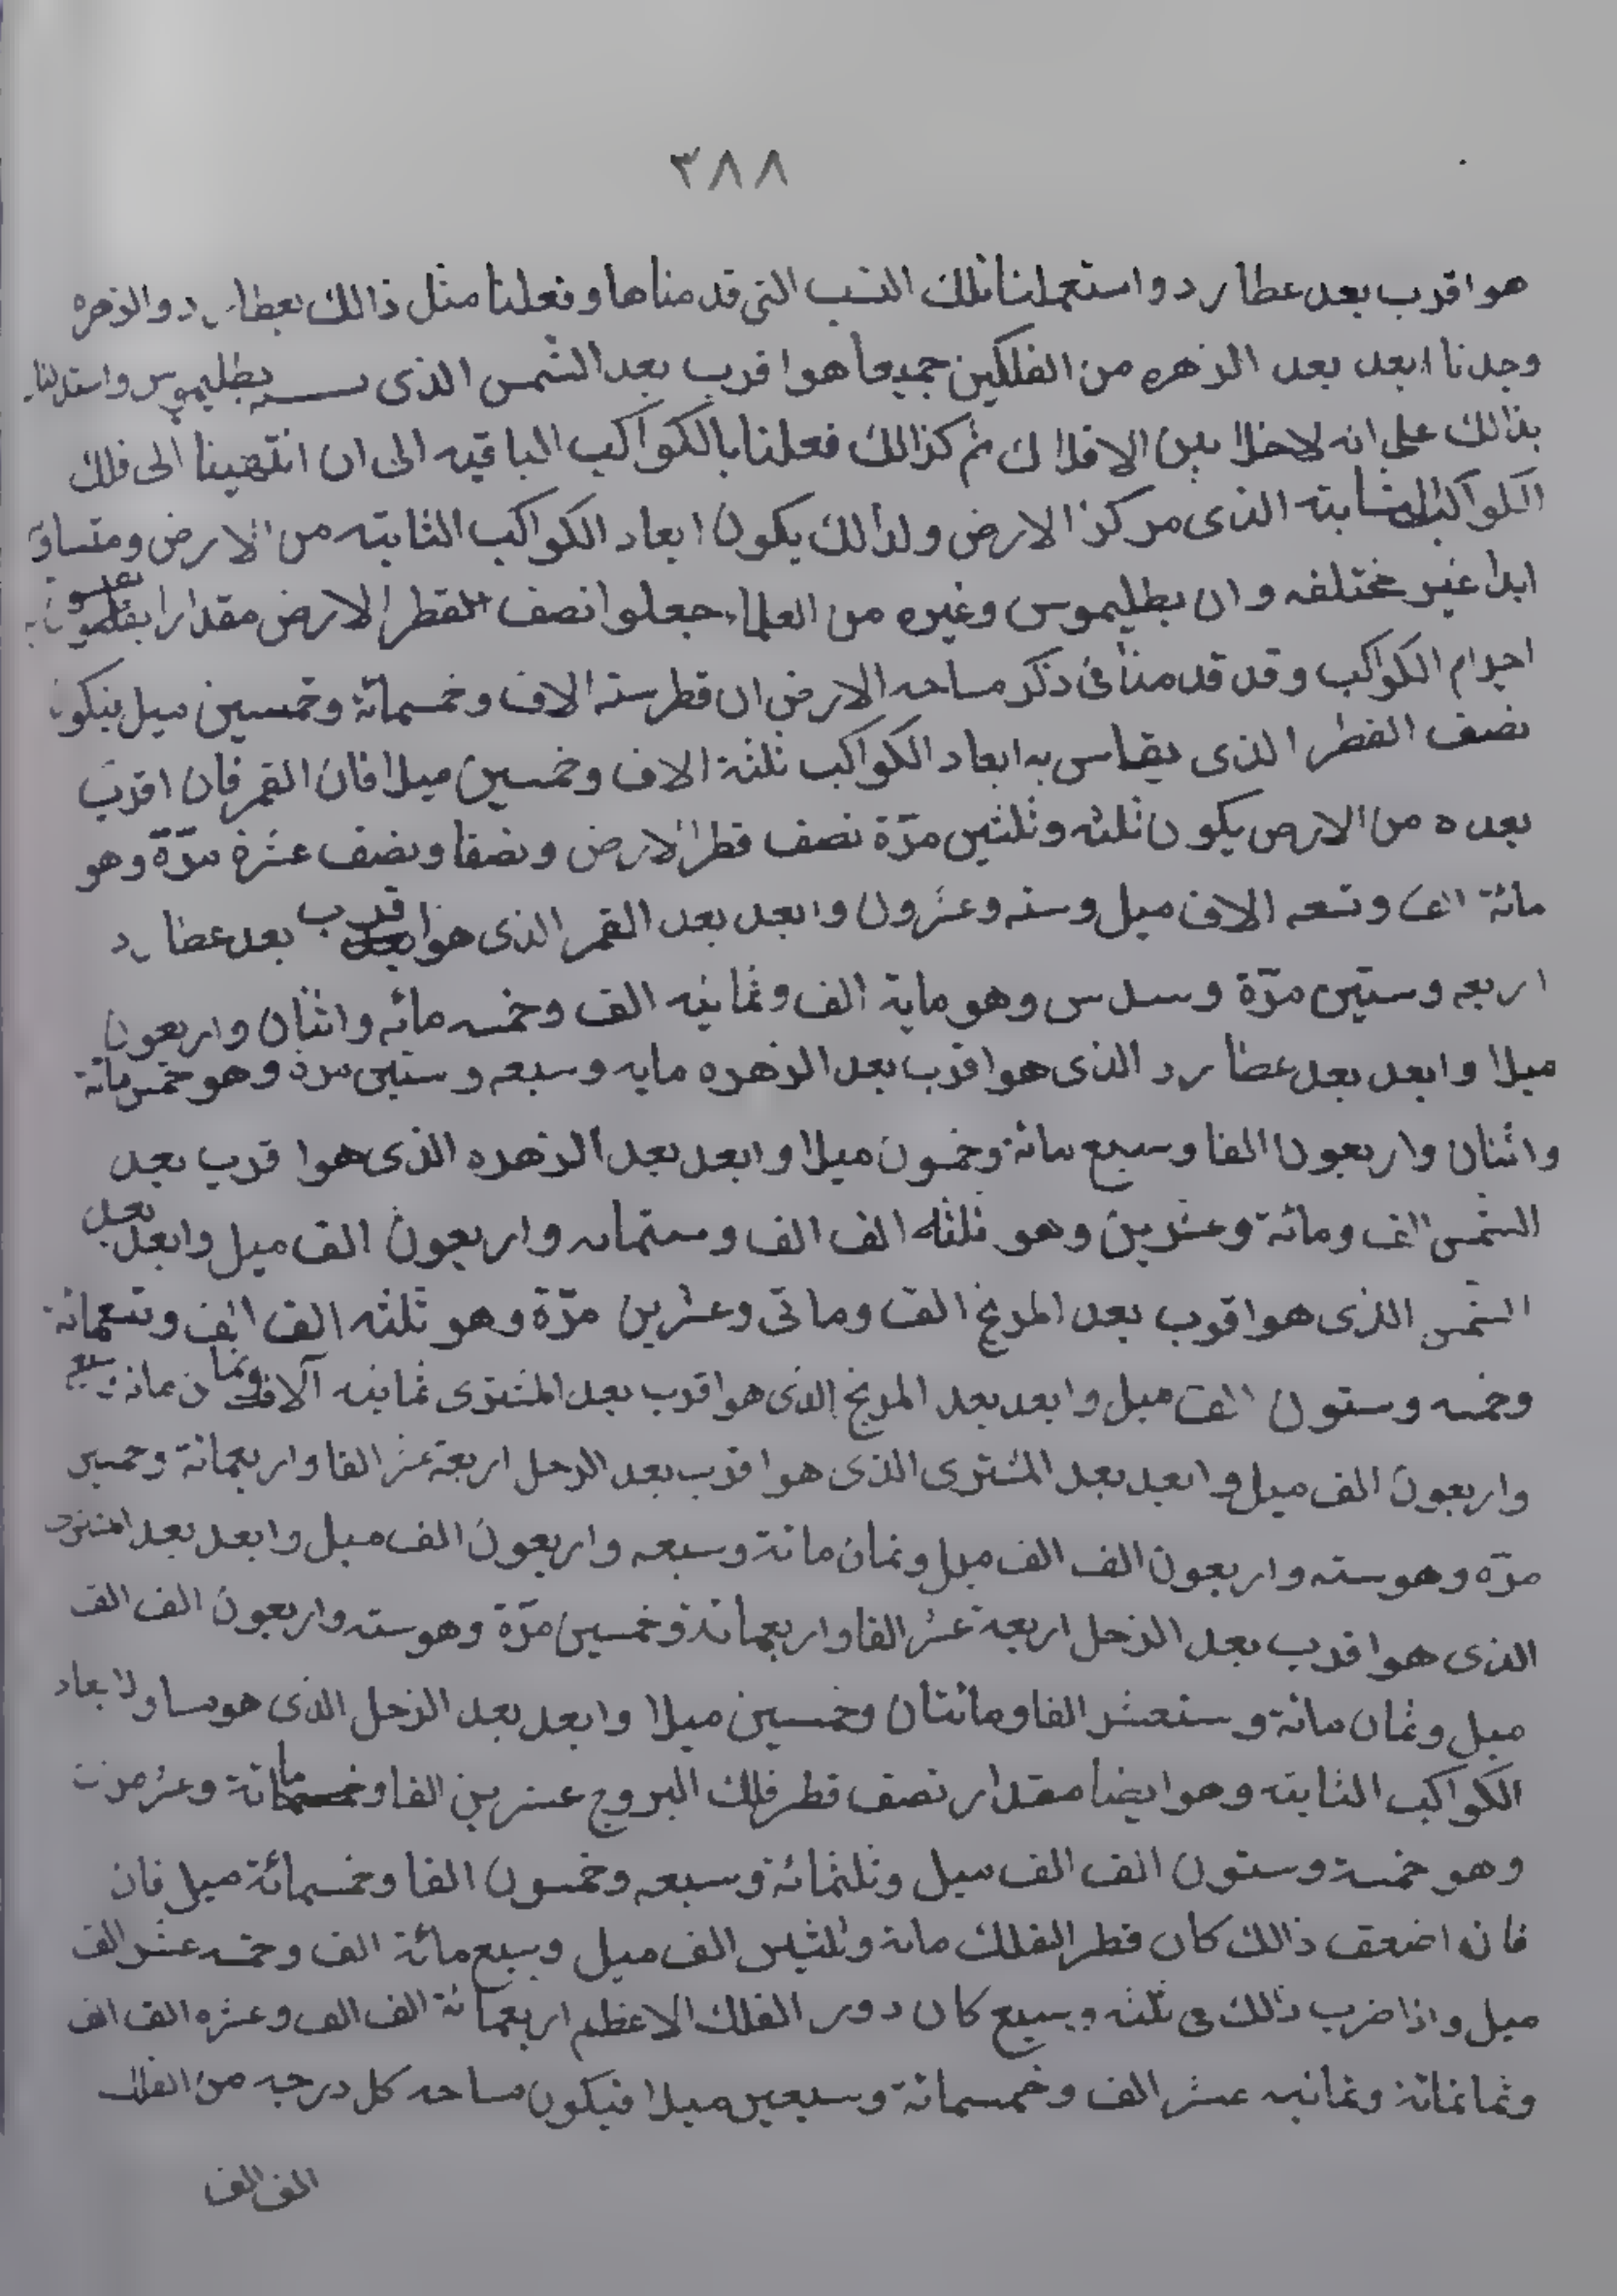 ٣٨٨
هو اقرب بعد عطارد واستعملنا تلك النسب التى قدمناها وفعلنا مثل ذالك بعطارد والزهره
وجدنا ابعد بعد الزهره من الفلكين جميعا هو اقرب بعد الشمس الذى بطليموس واستدللنا
بذالك على انه لاخلا بين الافلاك ثم كذالك فعلنا بالكواكب الباقيه الى ان انتهينا الى فلك
الكواكب الثابته الذى مركز الارض ولذالك يكون ابعاد الكواكب الثابته من الارض ومتساو
ابدا غير مختلفه وان بطليموس وغيره من العلماء جعلوا نصف القطر الارض مقدارا
اجرام الكواكب وقد قدمنا فى ذكر مساحه الارض ان قطر سته الاف وخمسمائة وخمسين ميل فيكون
نصف القطر الذى يقاس به ابعاد الكواكب ثلثة الاف وخمسين ميلا فان القمر فان اقرب
بعده من الارض يكون ثلثه وثلثين مرّة نصف قطر الارض ونصفا ونصف عشرة مرّة وهو
مائة الف وتسعه الاف ميل وسته وعشرون وابعد بعد القمر الذى هو اقرب بعد عطارد
اربعه وستين مرّة وسدس وهو ماية الف وثمانيه الف وخمسه مائه واثنان واربعون
ميلا وابعد بعد عطارد الذى هو اقرب بعد الزهره مايه وسبعه وستين مرة وهو خمس مائة
واثنان واربعون الفا وسبع مائة وخمسون ميلا وابعد بعد الزهره الذى هو اقرب بعد
الشمس الف ومائة وعشرين وهو ثلثه الف الف وستمائه واربعون الف ميل وابعد بعد
الشمس الذى هو اقرب بعد المريخ الف وماتى وعشرين مرّة وهو ثلثه الف الف وتسعمائة
وخمسه وستون الف ميل وابعد بعد المريخ الذى هو اقرب بعد المشترى ثمانيه آلاف وثمان مائة وسبع
واربعون الف ميل وابعد بعد المشترى الذى هو اقرب بعد الزحل اربعة عشر الفا واربعمائة وخمسين
مرّه وهو سته واربعون الف الف ميل وثمان مائة وسبعه واربعون الف ميل وابعد بعد المشترى
الذى هو اقرب بعد الزحل اربعة عشر الفا واربعمائة وخمسين مرّة وهو سته واربعون الف الف
ميل وثمان مائة وستعشر الفا ومائتان وخمسين ميلا وابعد بعد الزحل الذى هو مساو لابعاد
الكواكب الثابته وهو ايضا مقدار نصف قطر فلك البروج عشرين الفا وخمسمائة وعشر مرت
وهو خمسة وستون الف الف ميل وثلثمائة وسبعه وخمسون الفا وخمسمائة ميل فان
فانه اضعف ذالك كان قطر الفلك مائة وثلثين الف ميل وسبع مائة الف وخمسه عشر الف
ميل واذا ضرب ذلك فى ثلثه وسبع كان دور الفلك الاعظم اربعمائة الف الف وعشره الف الف
وثمانمائة وثمانيه عشر الف وخمسمائة وسبعين ميلا فيكون مساحه كل درجه من الفلك
الف الف